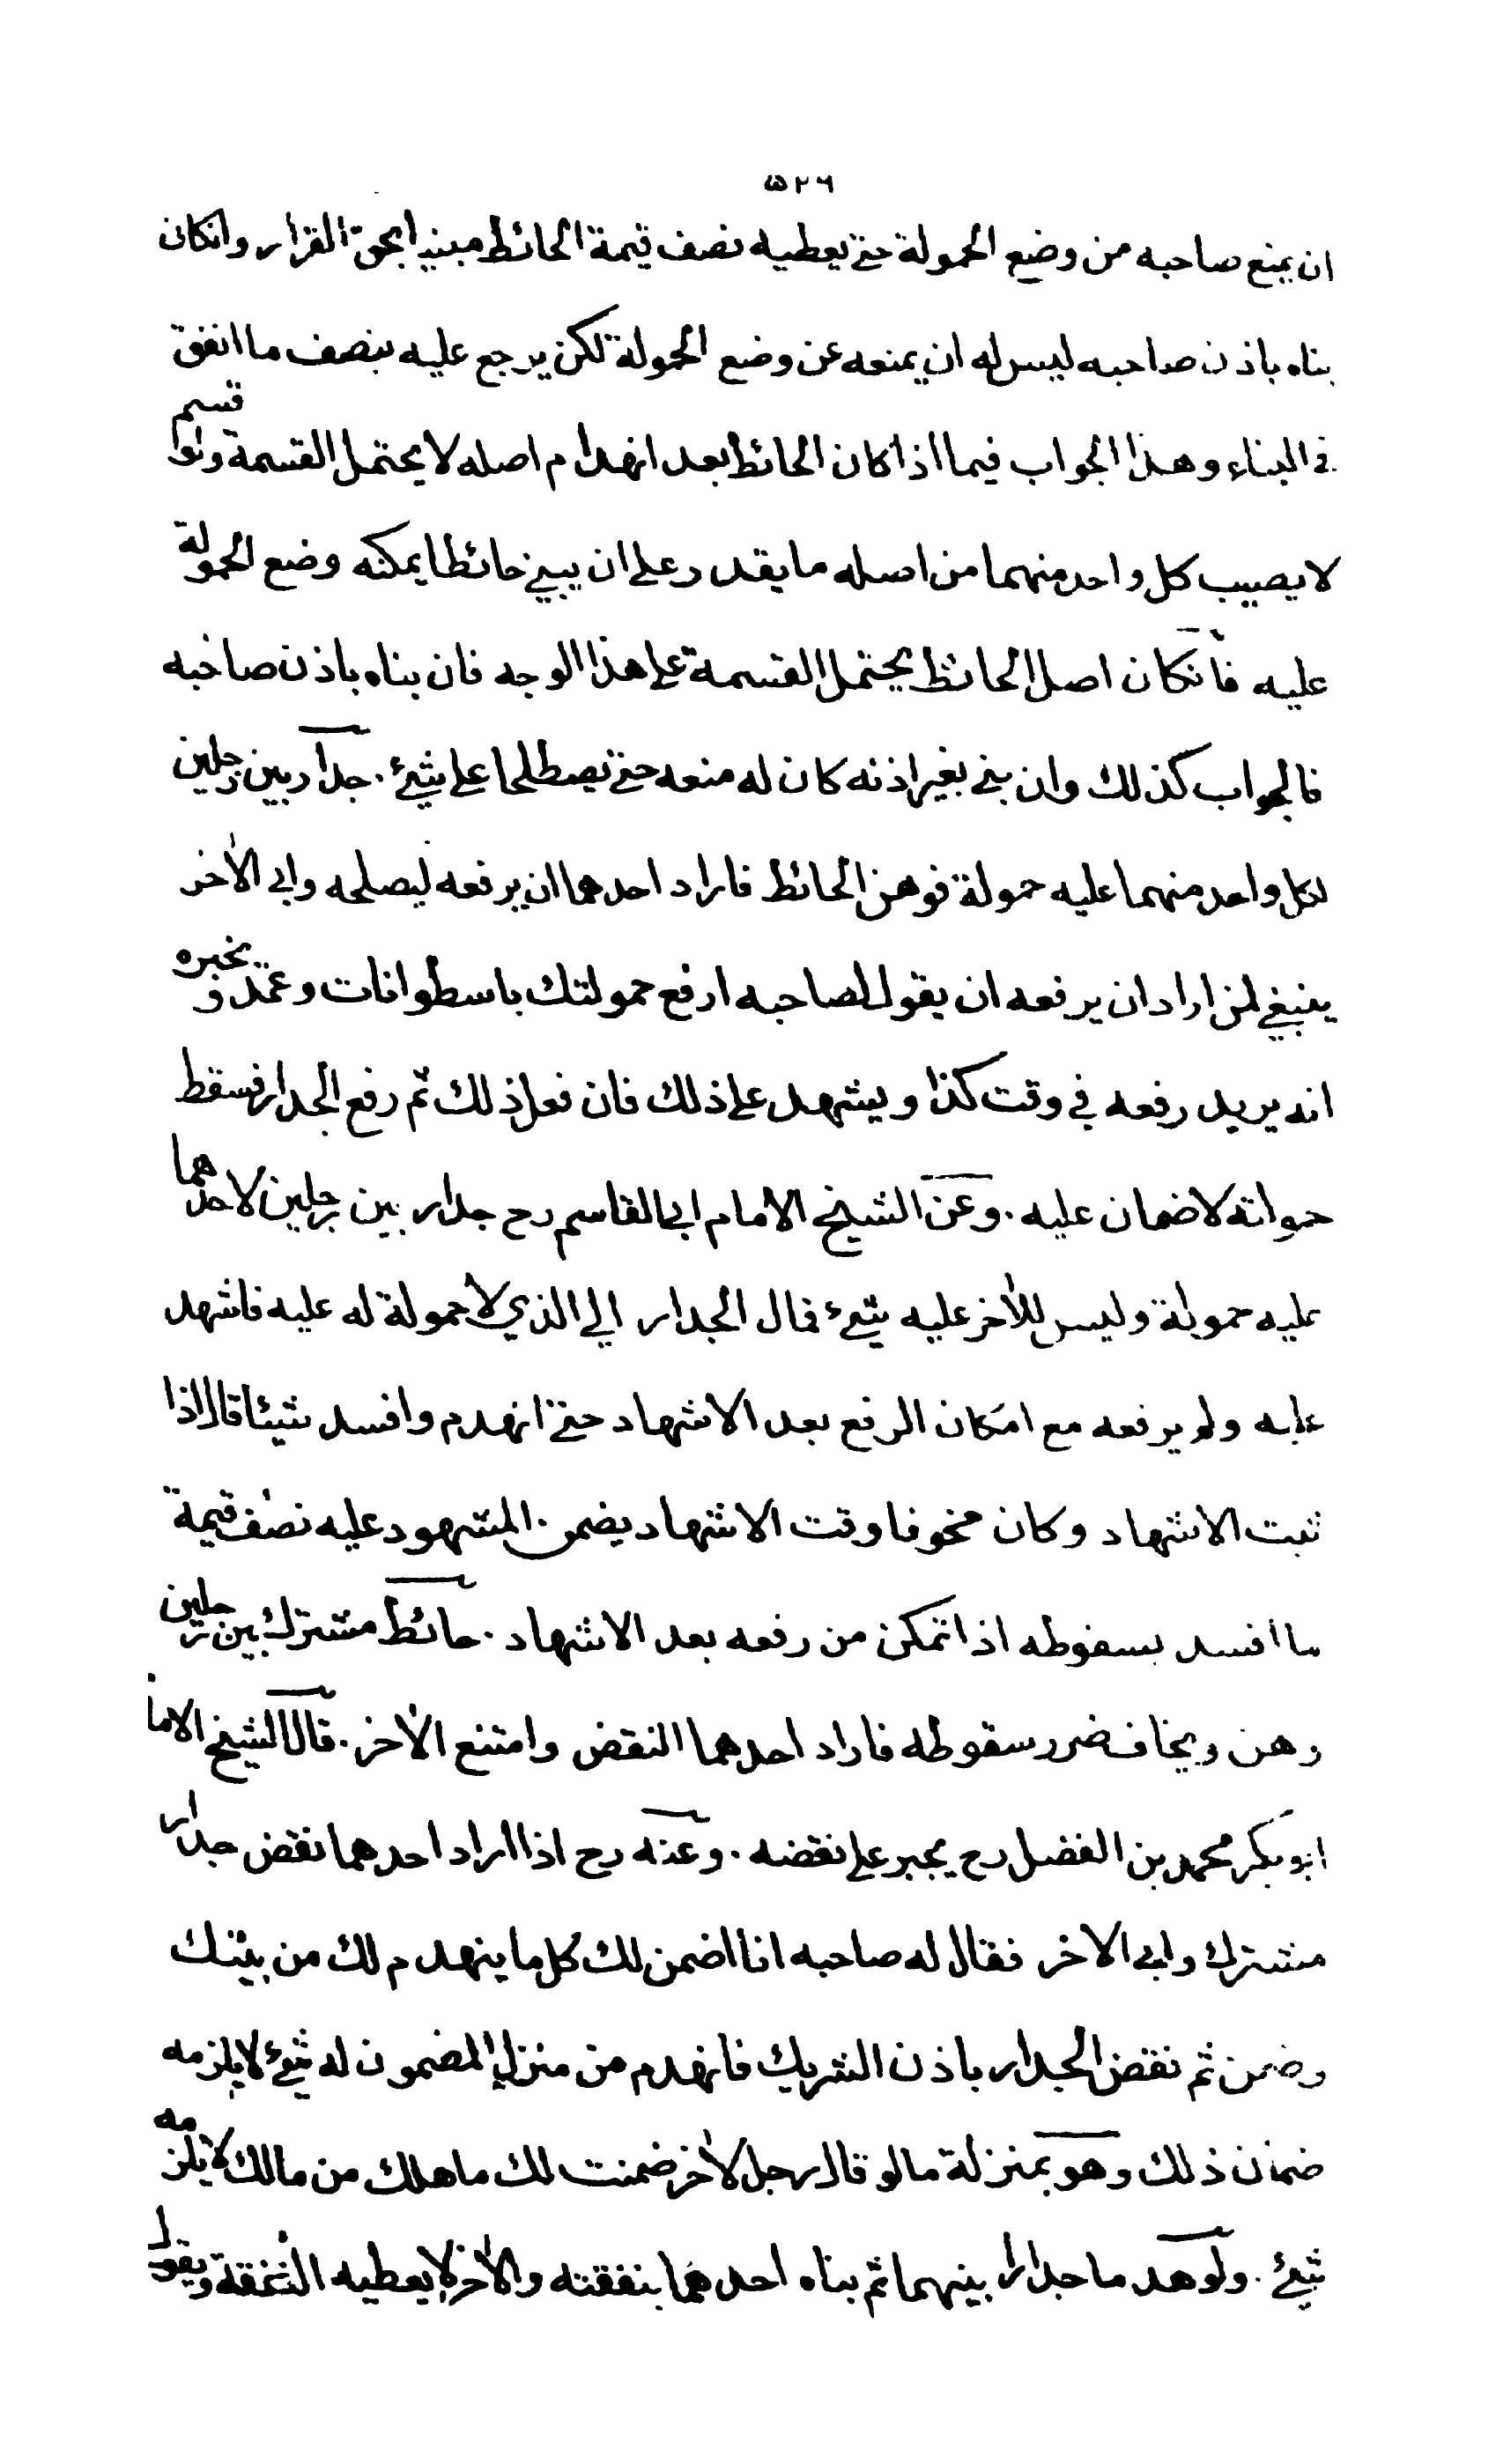 ٥٢٦
ان يمنع صاحبه من وضع الحمولة حتى يعطيه نصف قيمة الحائط مبنيا بحق القرار وانكان
بناه باذن صاحبه ليس له ان يمنعه عن وضع الحمولة لكن يرجع عليه بنصف ما انفق
في البناء وهذا الجواب فيما اذا كان الحائط بعد انهدام اصله لا يحتمل القسمة ولو قسم
لا يصيب كل واحد منهما من اصله ما يقدر على ان يبني حائطا يمكنه وضع الحمولة
عليه فانكان اصل الحائط يحتمل القسمة على هذا الوجه فان بناه باذن صاحبه
فالجواب كذلك وان بنى بغير اذنه كان له منعه حتى يصطلحا على شيء . جدار بين رجلين
لكل واحد منهما عليه حمولة فوهن الحائط فاراد احدهما ان يرفعه ليصلحه وابى الاخر
ينبغي لمن اراد ان يرفعه ان يقول لصاحبه ارفع حمولتك باسطوانات وعمد ويخبره
انه يريد رفعه في وقت كذا ويشهد على ذلك فان فعل ذلك ثم رفع الجدار فسقط
حمولته لا ضمان عليه . وعن الشيخ الامام ابي القاسم رح جدار بين رجلين لاحدهما
عليه حمولة وليس للاخر عليه شيء فمال الجدار الى الذي لا حمولة له عليه فاشهد
عليه ولم يرفعه مع امكان الرفع بعد الاشهاد حتى انهدم وافسد شيئا قال اذا
ثبت الاشهاد وكان مخوفا وقت الاشهاد يضمن المشهود عليه نصف قيمة
ما افسد بسقوطه اذا تمكن من رفعه بعد الاشهاد . حائط مشترك بين رجلين
وهن ويخاف ضرر سقوطه فاراد احدهما النقض وامتنع الاخر . قال الشيخ الامام
ابو بكر محمد بن الفضل رح يجبر على نقضه . وعنه رح اذا اراد احدهما نقض جدار
مشترك وابى الاخر فقال له صاحبه انا اضمن لك كل ما ينهدم لك من بيتك
وضمن ثم نقض الجدار باذن الشريك فانهدم من منزل المضمون له شيء لا يلزمه
ضمان ذلك وهو بمنزلة ما لو قال رجل لاخر ضمنت لك ما هلك من مالك لا يلزمه
شيء . ولو هدما جدارا بينهما ثم بناه احدهما بنفقته والاخر لا يعطيه النفقة ويقول